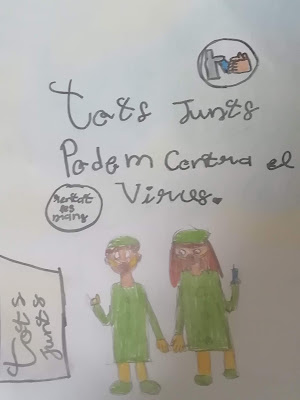 Tots Junts
Podem Contra el
Virus.
Rentat
les
mans
Tots
junts